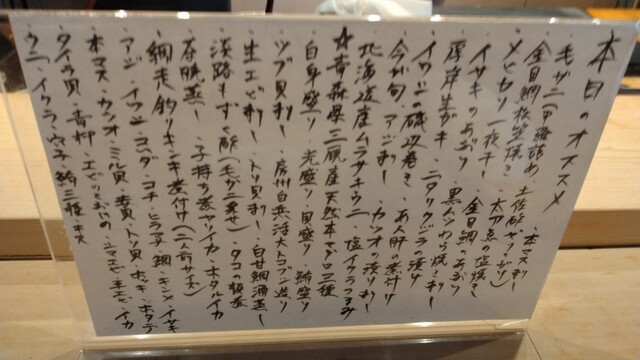 本日のオススメ
毛ガニ(甲羅詰め)・本マス刺し
金目鯛松笠焼き・土佐酢ガリ
メヒカリ一夜干し・太刀魚の塩焼き
イサキのあぶり・金目鯛のあぶり
厚岸生ガキ・黒ムツわら焼き刺し
イワシの磯辺巻き・ニタリクジラの漬け
今が旬・アジ刺し・あん肝の煮付け
北海道産ムラサキウニ・カツオの漬け刺し
☆青森県三厩産天然本マグロ三種・塩イクラつまみ
白身盛り・光盛り・貝盛り・鮪盛り
ツブ貝刺し・房州白灸活大トコブシ造り
生エビ刺し・トリ貝刺し・白甘鯛酒蒸し
淡路もずく酢(毛ガニ乗せ)・タコの桜煮
茶碗蒸し・子持ち煮ヤリイカ・ホタルイカ
網走釣りキンキ煮付け(二人前サイズ)
アジ・イワシ・コハダ・コチ・ヒラメ・鯛・キンメ・イサキ
本マス・カツオ・ミル貝・赤貝・トリ貝・ホッキ・ホタテ
タイラ貝・青柳・エビ・シマエビ・本エビ・イカ
ウニ・イクラ・穴子・鮪三種・キス